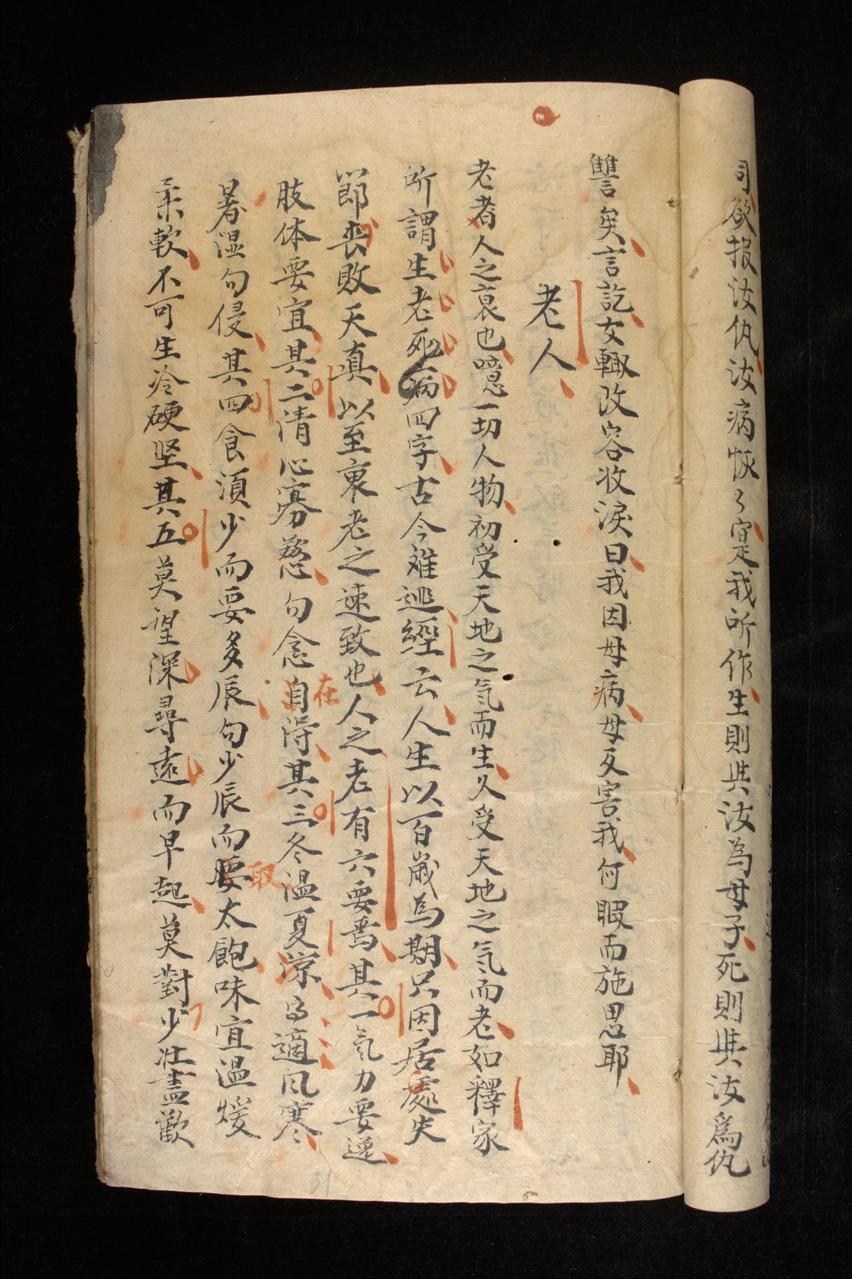 司欲报汝仇汝病恢〻寔我所作生則與汝為母子死則與汝爲仇
讐矣言訖女輙改容收淚曰我因母病母反害我何暇而施恩耶
老人
老者人之哀也噫一切人物初受天地之氣而生久受天地之气而老如釋家
所謂生老死病四字古今难逃經云人生以百歲為期只因居處失
節丧敗天真以至衰老之速致也人之老有六要焉其一氣力要逸
肢体要宜其二清心寡慾勾念自淂其三冬温夏凉勾適风寒
在
暑湿勾侵其四食湏少而要多辰勾少辰而腰太飽味宜温煖
取
柔軟不可生冷硬坚其五莫望深尋遠而早起莫對少壮盡歡